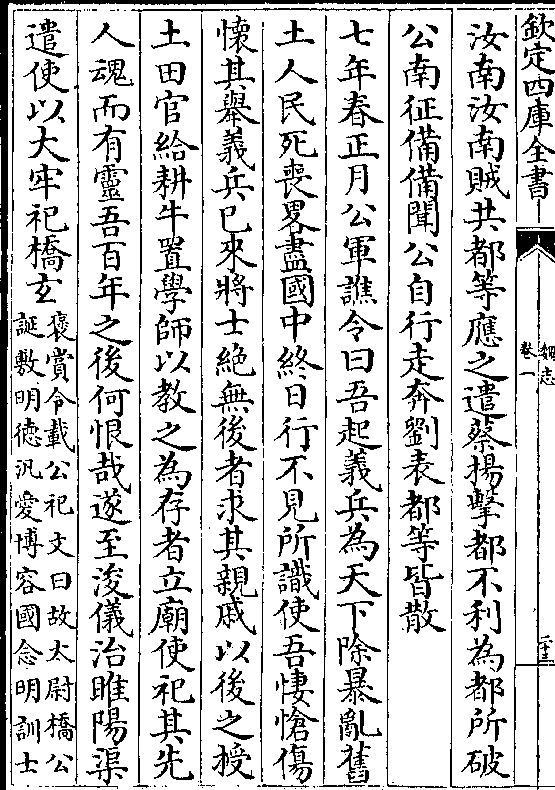 欽定四庫全書
魏志
卷一
二十三
汝南汝南賊共都等應之遣蔡揚擊都不利為都所破
公南征備備聞公自行走奔劉表都等皆散
七年春正月公軍譙令曰吾起義兵為天下除暴亂舊
土人民死喪畧盡國中終日行不見所識使吾悽愴傷
懷其舉義兵已來將士絶無後者求其親戚以後之授
土田官給耕牛置學師以教之為存者立廟使祀其先
人魂而有靈吾百年之後何恨哉遂至浚儀治睢陽渠
遣使以大牢祀橋玄
褒賞令載公祀文曰故太尉橋公
誕敷明德汎愛博容國念明訓士